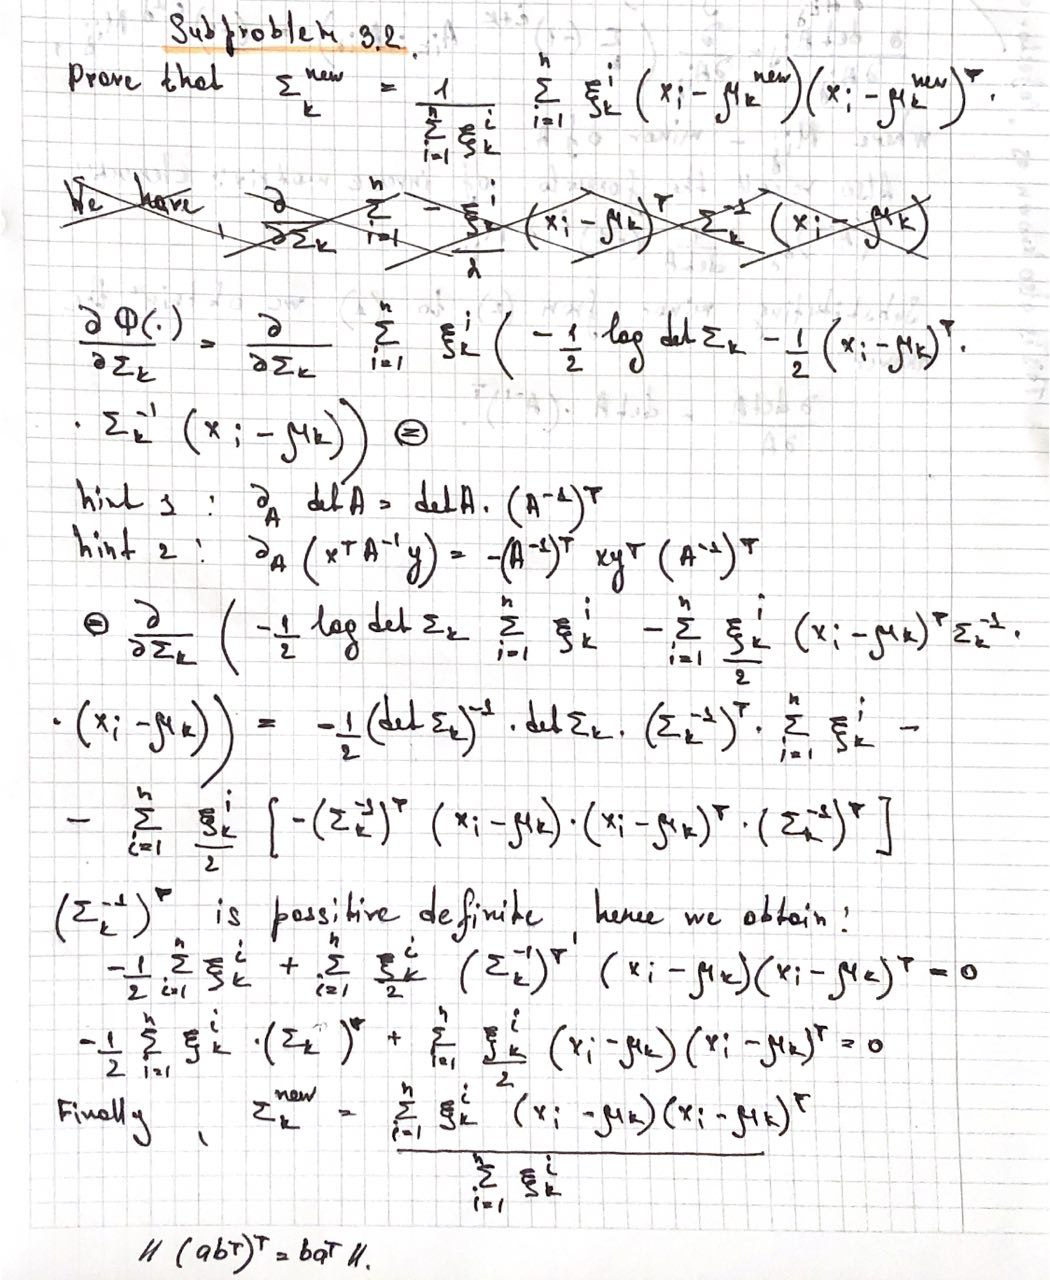 Subproblem 3.2.
Prove that Σ_k^new = 1 / (Σ_{i=1}^n ξ_k^i) Σ_{i=1}^n ξ_k^i (x_i − μ_k^new)(x_i − μ_k^new)^T.
We have, ∂/∂Σ_k Σ_{i=1}^n − ξ_k^i/2 (x_i − μ_k)^T Σ_k^{-1} (x_i − μ_k)
∂Φ(·)/∂Σ_k = ∂/∂Σ_k Σ_{i=1}^n ξ_k^i ( −1/2 · log det Σ_k − 1/2 (x_i − μ_k)^T ·
· Σ_k^{-1} (x_i − μ_k)) ⊜
hint 1 : ∂_A det A = det A · (A^{-1})^T
hint 2 : ∂_A (x^T A^{-1} y) = −(A^{-1})^T x y^T (A^{-1})^T
⊜ ∂/∂Σ_k ( −1/2 log det Σ_k Σ_{i=1}^n ξ_k^i − Σ_{i=1}^n ξ_k^i/2 (x_i − μ_k)^T Σ_k^{-1} ·
· (x_i − μ_k)) = −1/2 (det Σ_k)^{-1} · det Σ_k · (Σ_k^{-1})^T · Σ_{i=1}^n ξ_k^i −
− Σ_{i=1}^n ξ_k^i/2 [ −(Σ_k^{-1})^T (x_i − μ_k) · (x_i − μ_k)^T · (Σ_k^{-1})^T ]
(Σ_k^{-1})^T is possitive definite, hence we obtain:
−1/2 Σ_{i=1}^n ξ_k^i + Σ_{i=1}^n ξ_k^i/2 (Σ_k^{-1})^T (x_i − μ_k)(x_i − μ_k)^T = 0
−1/2 Σ_{i=1}^n ξ_k^i · (Σ_k)^T + Σ_{i=1}^n ξ_k^i/2 (x_i − μ_k)(x_i − μ_k)^T = 0
Finally, Σ_k^new = Σ_{i=1}^n ξ_k^i (x_i − μ_k)(x_i − μ_k)^T / Σ_{i=1}^n ξ_k^i
// (ab^T)^T = ba^T //.